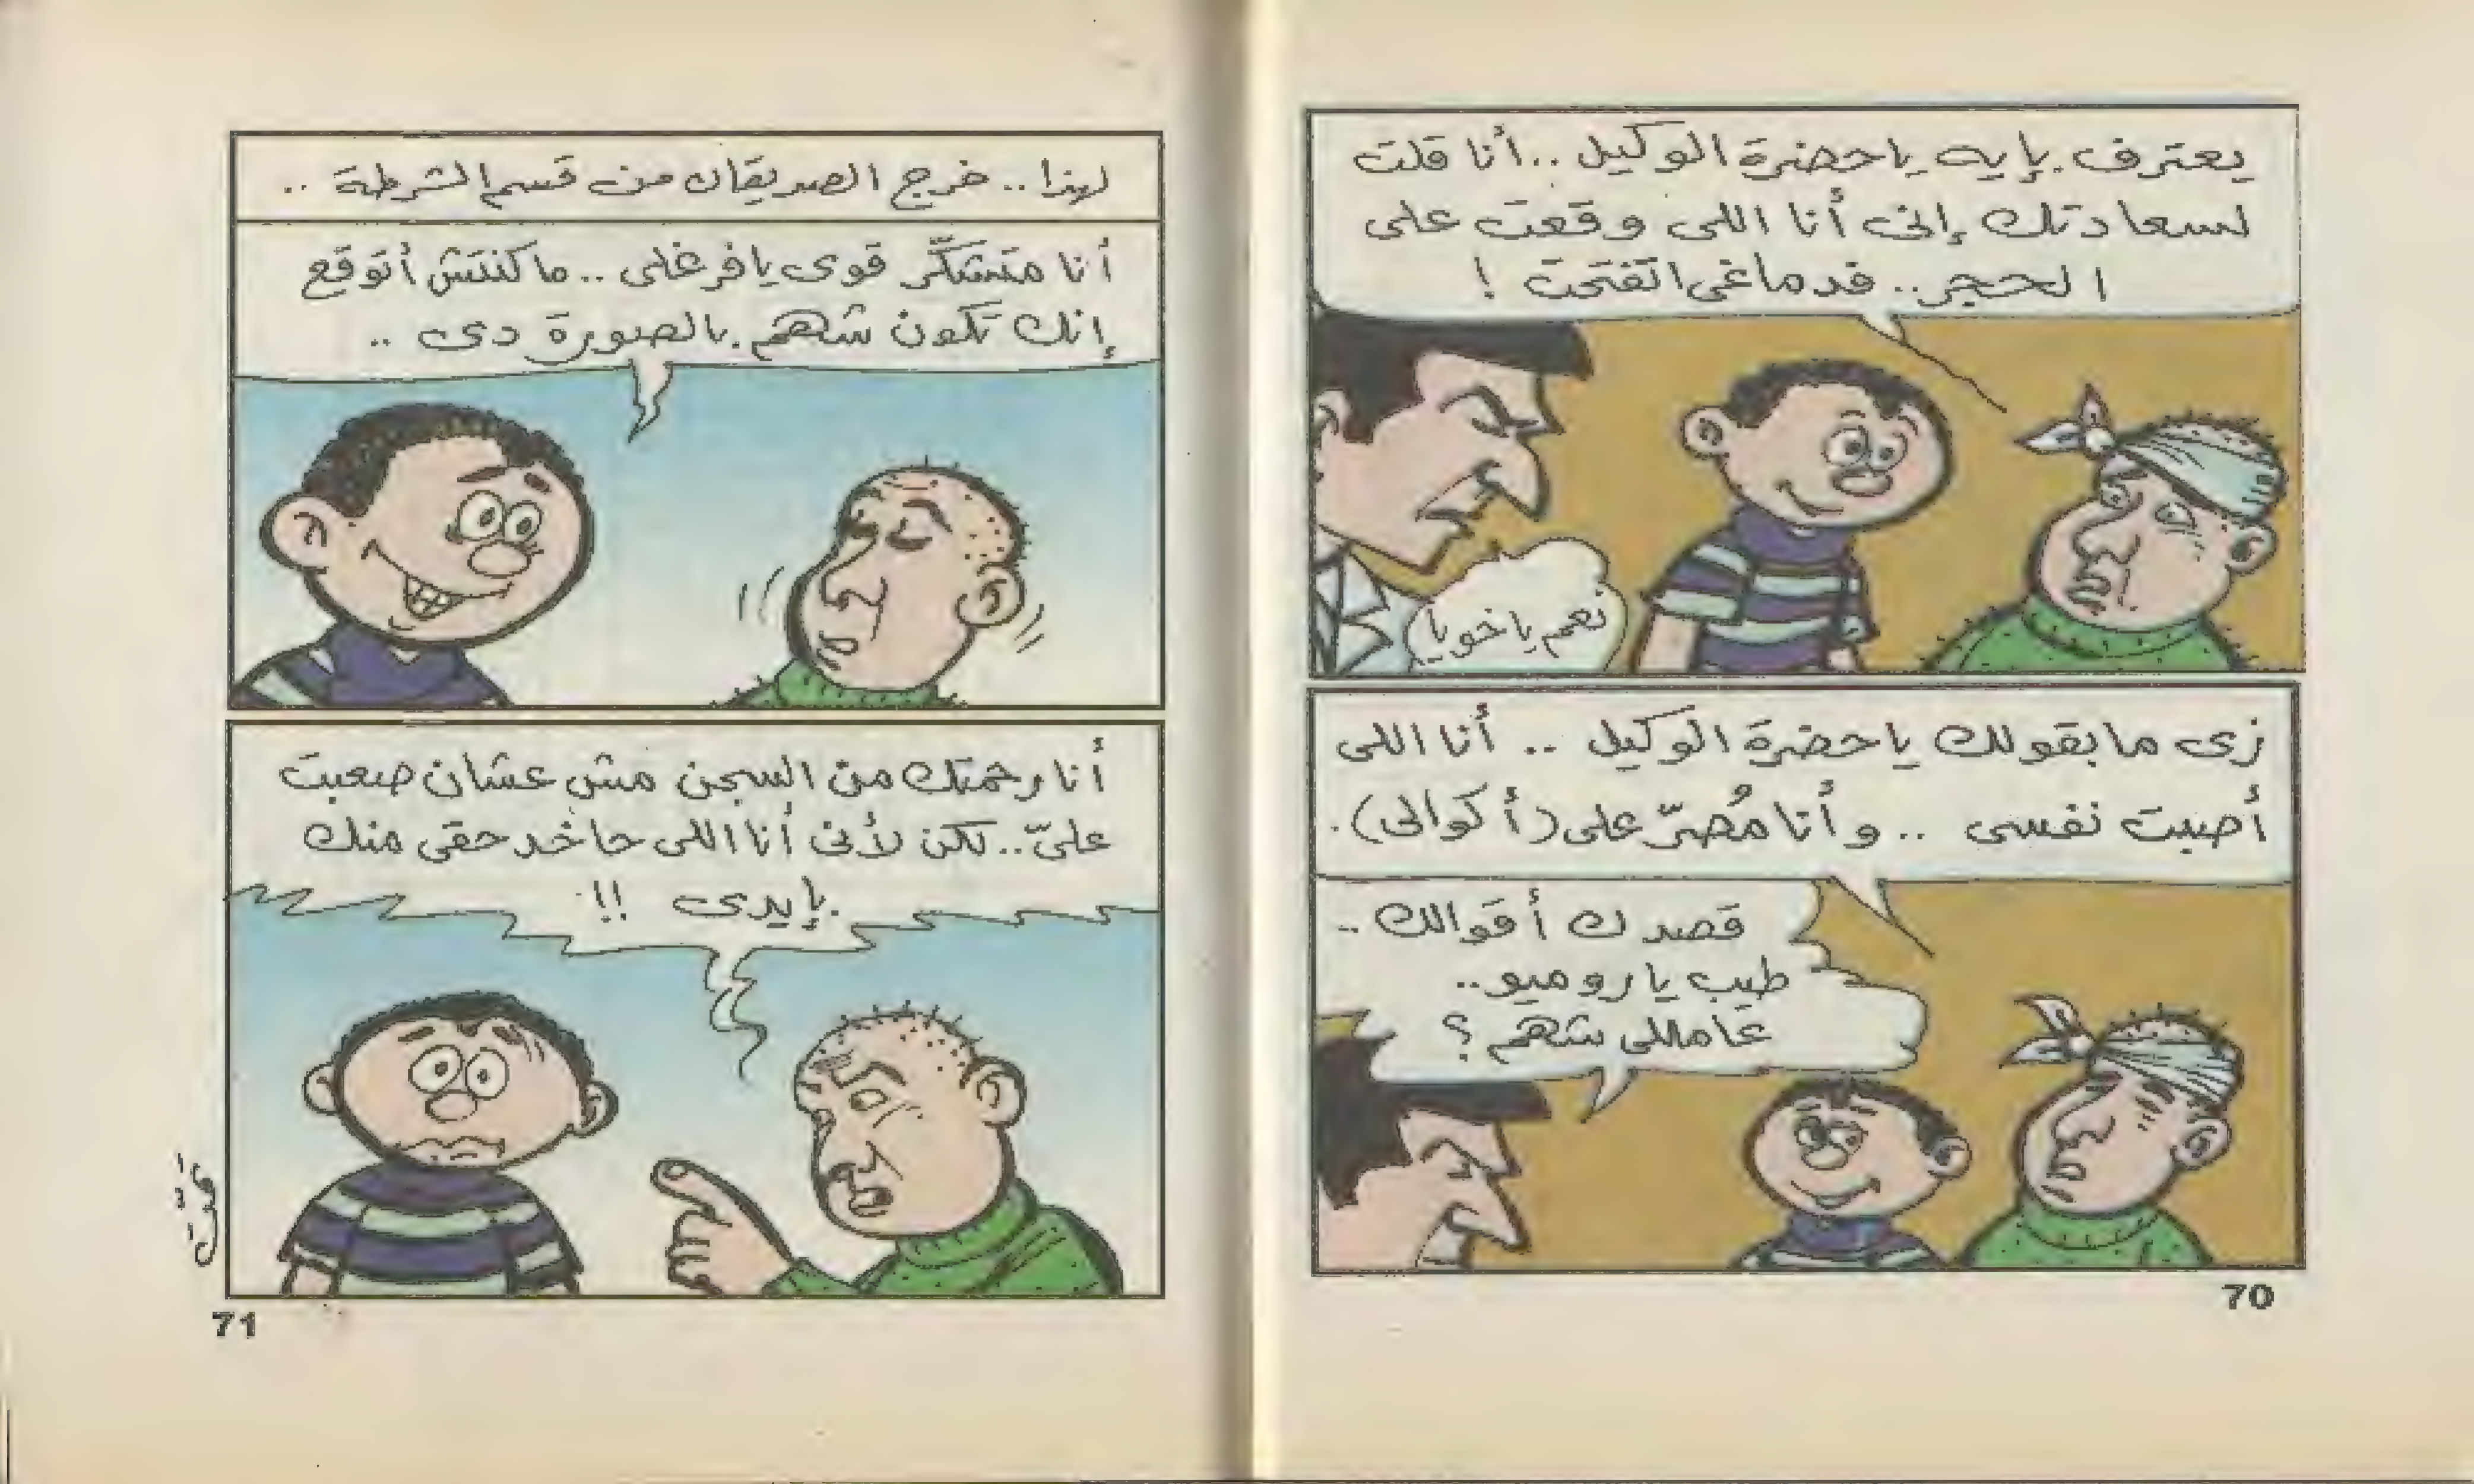 يعترف بإيه يا حضرة الوكيل .. أنا قلت
لسعادتك إنى أنا اللى وقعت على
الحجر .. فدماغى اتفتحت !
نعم يا خويا
زى ما بقولك يا حضرة الوكيل .. أنا اللى
أصبت نفسى .. وأنا مُصرّ على (أكوالى).
قصدك أقوالك ..
طيب يا روميو ..
عاملى شهم ؟
70
لهذا .. خرج الصديقان من قسم الشرطة ..
أنا متشكّر قوى يا فرغلى .. ما كنتش أتوقع
إنك تكون شهم بالصورة دى ..
أنا رحمتك من السجن مش عشان صعبت
علىّ .. لكن لأنى أنا اللى حاخد حقى منك
بإيدى !!
71